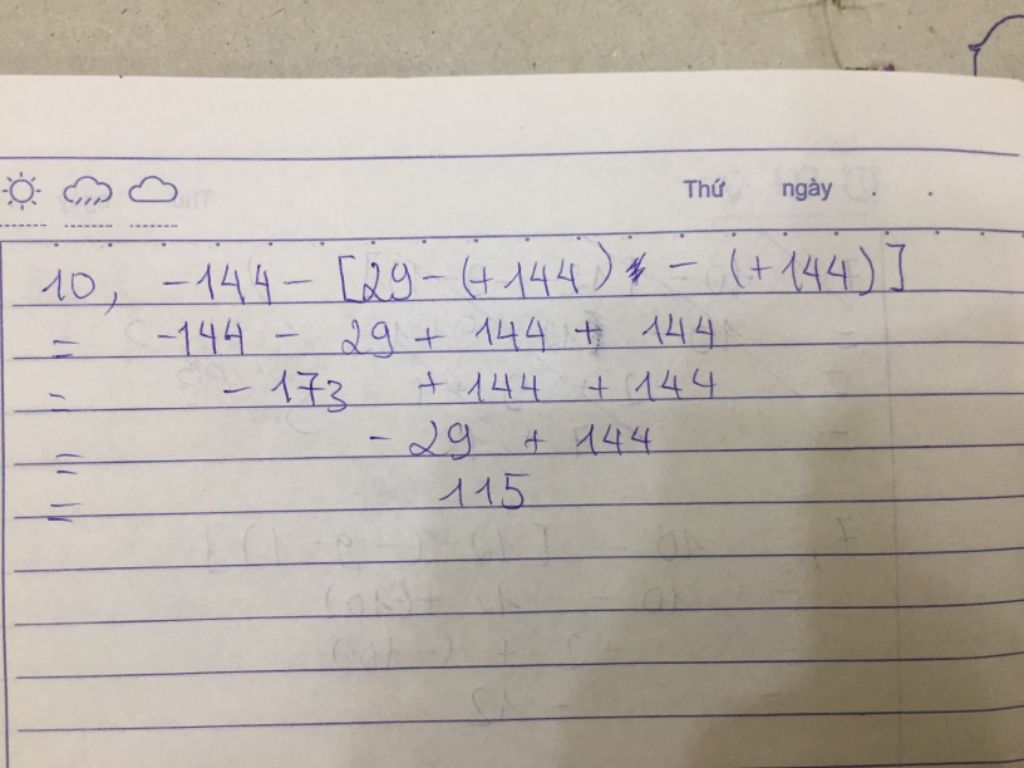 Thứ ngày . .
10, -144 - [29 - (+144) - (+144)]
= -144 - 29 + 144 + 144
= - 173 + 144 + 144
= - 29 + 144
= 115